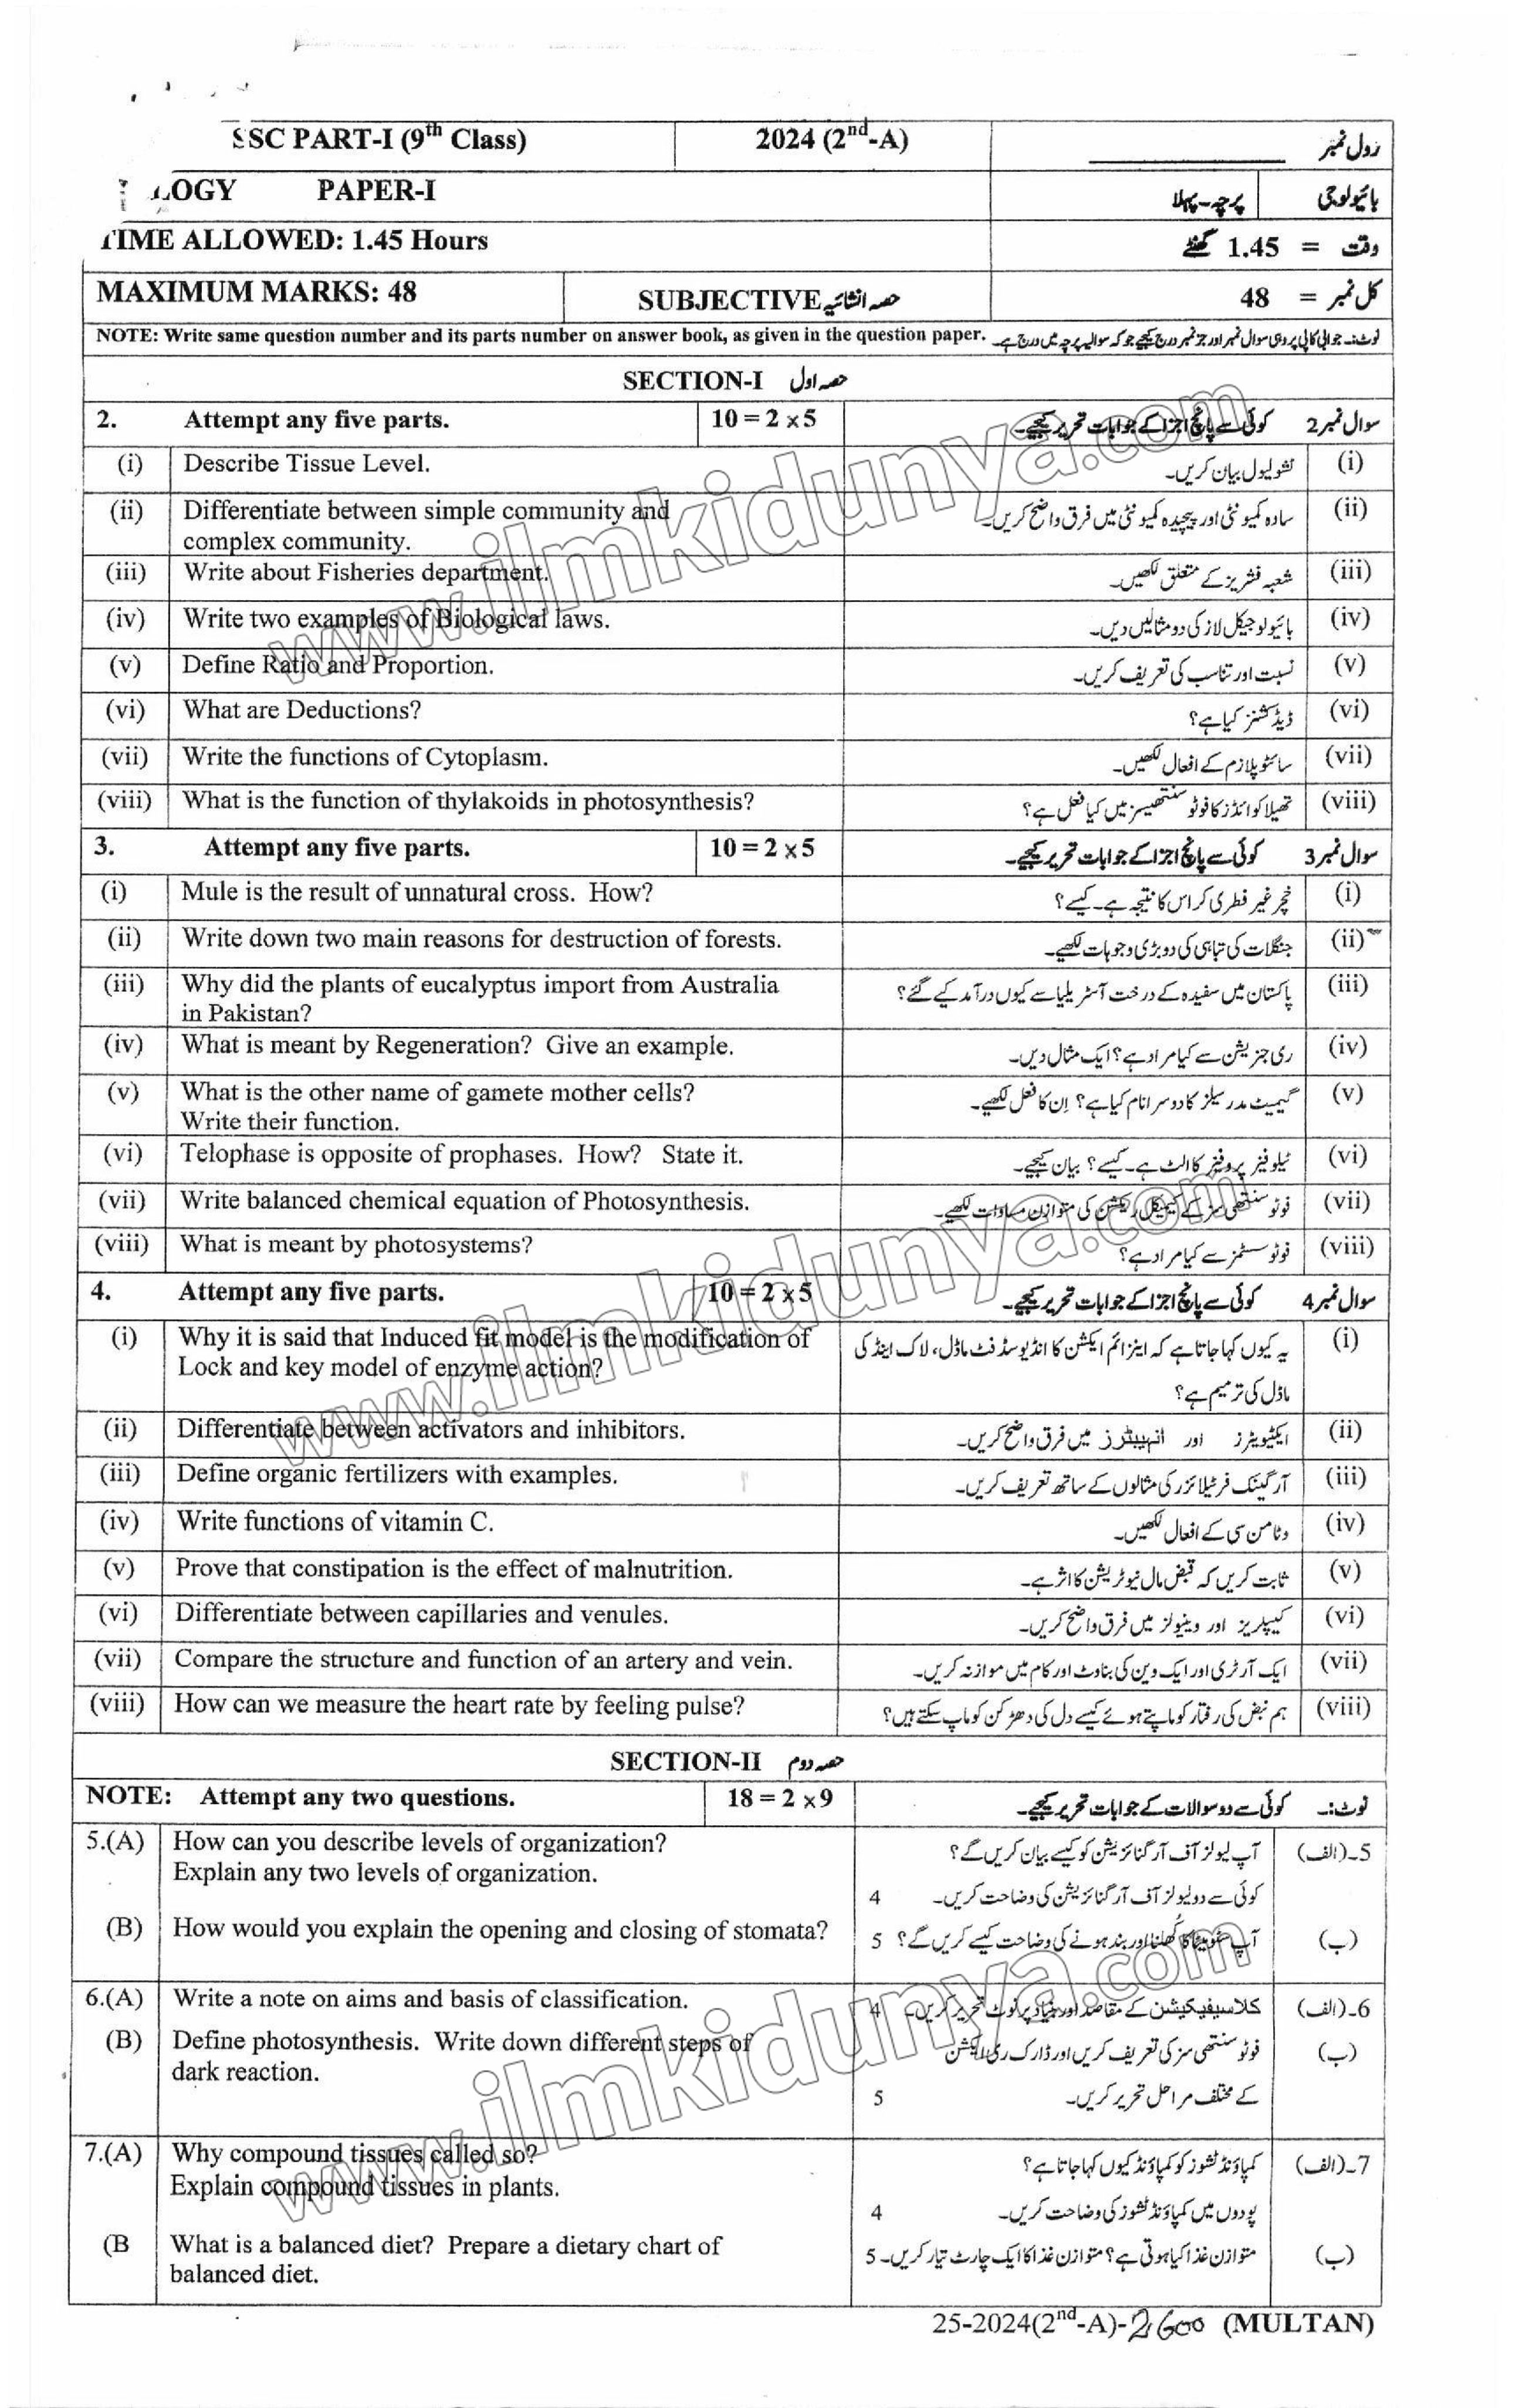 SSC PART-I (9th Class) 2024 (2nd-A) رول نمبر ____________
LOGY PAPER-I بائیولوجی پرچہ-پہلا
TIME ALLOWED: 1.45 Hours وقت = 1.45 گھنٹے
MAXIMUM MARKS: 48 SUBJECTIVE حصہ انشائیہ کل نمبر = 48
NOTE: Write same question number and its parts number on answer book, as given in the question paper. نوٹ:۔ جوابی کاپی پر وہی سوال نمبر اور جز نمبر درج کیجیے جو کہ سوالیہ پرچہ میں درج ہے۔
SECTION-I حصہ اول
2. Attempt any five parts. 10 = 2 x 5 سوال نمبر 2 کوئی سے پانچ اجزا کے جوابات تحریر کیجیے۔
(i) Describe Tissue Level. ٹشو لیول بیان کریں۔ (i)
(ii) Differentiate between simple community and سادہ کمیونٹی اور پیچیدہ کمیونٹی میں فرق واضح کریں۔ (ii)
complex community.
(iii) Write about Fisheries department. شعبہ فشریز کے متعلق لکھیں۔ (iii)
(iv) Write two examples of Biological laws. بائیولوجیکل لاز کی دو مثالیں دیں۔ (iv)
(v) Define Ratio and Proportion. نسبت اور تناسب کی تعریف کریں۔ (v)
(vi) What are Deductions? ڈیڈکشنز کیا ہے؟ (vi)
(vii) Write the functions of Cytoplasm. سائٹوپلازم کے افعال لکھیں۔ (vii)
(viii) What is the function of thylakoids in photosynthesis? تھیلاکوائڈز کا فوٹو سنتھیسز میں کیا فعل ہے؟ (viii)
3. Attempt any five parts. 10 = 2 x 5 سوال نمبر 3 کوئی سے پانچ اجزا کے جوابات تحریر کیجیے۔
(i) Mule is the result of unnatural cross. How? خچر غیر فطری کراس کا نتیجہ ہے۔ کیسے؟ (i)
(ii) Write down two main reasons for destruction of forests. جنگلات کی تباہی کی دو بڑی وجوہات لکھیے۔ (ii)
(iii) Why did the plants of eucalyptus import from Australia پاکستان میں سفیدہ کے درخت آسٹریلیا سے کیوں درآمد کیے گئے؟ (iii)
in Pakistan?
(iv) What is meant by Regeneration? Give an example. ری جنریشن سے کیا مراد ہے؟ ایک مثال دیں۔ (iv)
(v) What is the other name of gamete mother cells? گیمیٹ مدر سیلز کا دوسرا نام کیا ہے؟ اِن کا فعل لکھیے۔ (v)
Write their function.
(vi) Telophase is opposite of prophases. How? State it. ٹیلوفیز پروفیز کا الٹ ہے۔ کیسے؟ بیان کیجیے۔ (vi)
(vii) Write balanced chemical equation of Photosynthesis. فوٹو سنتھی سز کے کیمیکل ری ایکشن کی متوازن مساوات لکھیے۔ (vii)
(viii) What is meant by photosystems? فوٹو سسٹمز سے کیا مراد ہے؟ (viii)
4. Attempt any five parts. 10 = 2 x 5 سوال نمبر 4 کوئی سے پانچ اجزا کے جوابات تحریر کیجیے۔
(i) Why it is said that Induced fit model is the modification of یہ کیوں کہا جاتا ہے کہ اینزائم ایکشن کا انڈیوسڈ فٹ ماڈل، لاک اینڈ کی (i)
Lock and key model of enzyme action? ماڈل کی ترمیم ہے؟
(ii) Differentiate between activators and inhibitors. ایکٹیویٹرز اور انہیبیٹرز میں فرق واضح کریں۔ (ii)
(iii) Define organic fertilizers with examples. آرگینک فرٹیلائزر کی مثالوں کے ساتھ تعریف کریں۔ (iii)
(iv) Write functions of vitamin C. وٹامن سی کے افعال لکھیں۔ (iv)
(v) Prove that constipation is the effect of malnutrition. ثابت کریں کہ قبض مال نیوٹریشن کا اثر ہے۔ (v)
(vi) Differentiate between capillaries and venules. کیپلریز اور وینیولز میں فرق واضح کریں۔ (vi)
(vii) Compare the structure and function of an artery and vein. ایک آرٹری اور ایک وین کی بناوٹ اور کام میں موازنہ کریں۔ (vii)
(viii) How can we measure the heart rate by feeling pulse? ہم نبض کی رفتار کو ماپتے ہوئے کیسے دل کی دھڑکن کو ماپ سکتے ہیں؟ (viii)
SECTION-II حصہ دوم
NOTE: Attempt any two questions. 18 = 2 x 9 نوٹ:۔ کوئی سے دو سوالات کے جوابات تحریر کیجیے۔
5.(A) How can you describe levels of organization? آپ لیولز آف آرگنائزیشن کو کیسے بیان کریں گے؟ 5۔(الف)
Explain any two levels of organization. کوئی سے دو لیولز آف آرگنائزیشن کی وضاحت کریں۔ 4
(B) How would you explain the opening and closing of stomata? آپ سٹومیٹا کا کُھلنا اور بند ہونے کی وضاحت کیسے کریں گے؟ 5 (ب)
6.(A) Write a note on aims and basis of classification. کلاسیفیکیشن کے مقاصد اور بنیاد پر نوٹ تحریر کریں۔ 4 6۔(الف)
(B) Define photosynthesis. Write down different steps of فوٹو سنتھی سز کی تعریف کریں اور ڈارک ری ایکشن (ب)
dark reaction. کے مختلف مراحل تحریر کریں۔ 5
7.(A) Why compound tissues called so? کمپاؤنڈ ٹشوز کو کمپاؤنڈ کیوں کہا جاتا ہے؟ 7۔(الف)
Explain compound tissues in plants. پودوں میں کمپاؤنڈ ٹشوز کی وضاحت کریں۔ 4
(B What is a balanced diet? Prepare a dietary chart of متوازن غذا کیا ہوتی ہے؟ متوازن غذا کا ایک چارٹ تیار کریں۔ 5 (ب)
balanced diet.
25-2024(2nd-A)-2600 (MULTAN)
www.ilmkidunya.com
www.ilmkidunya.com
www.ilmkidunya.com